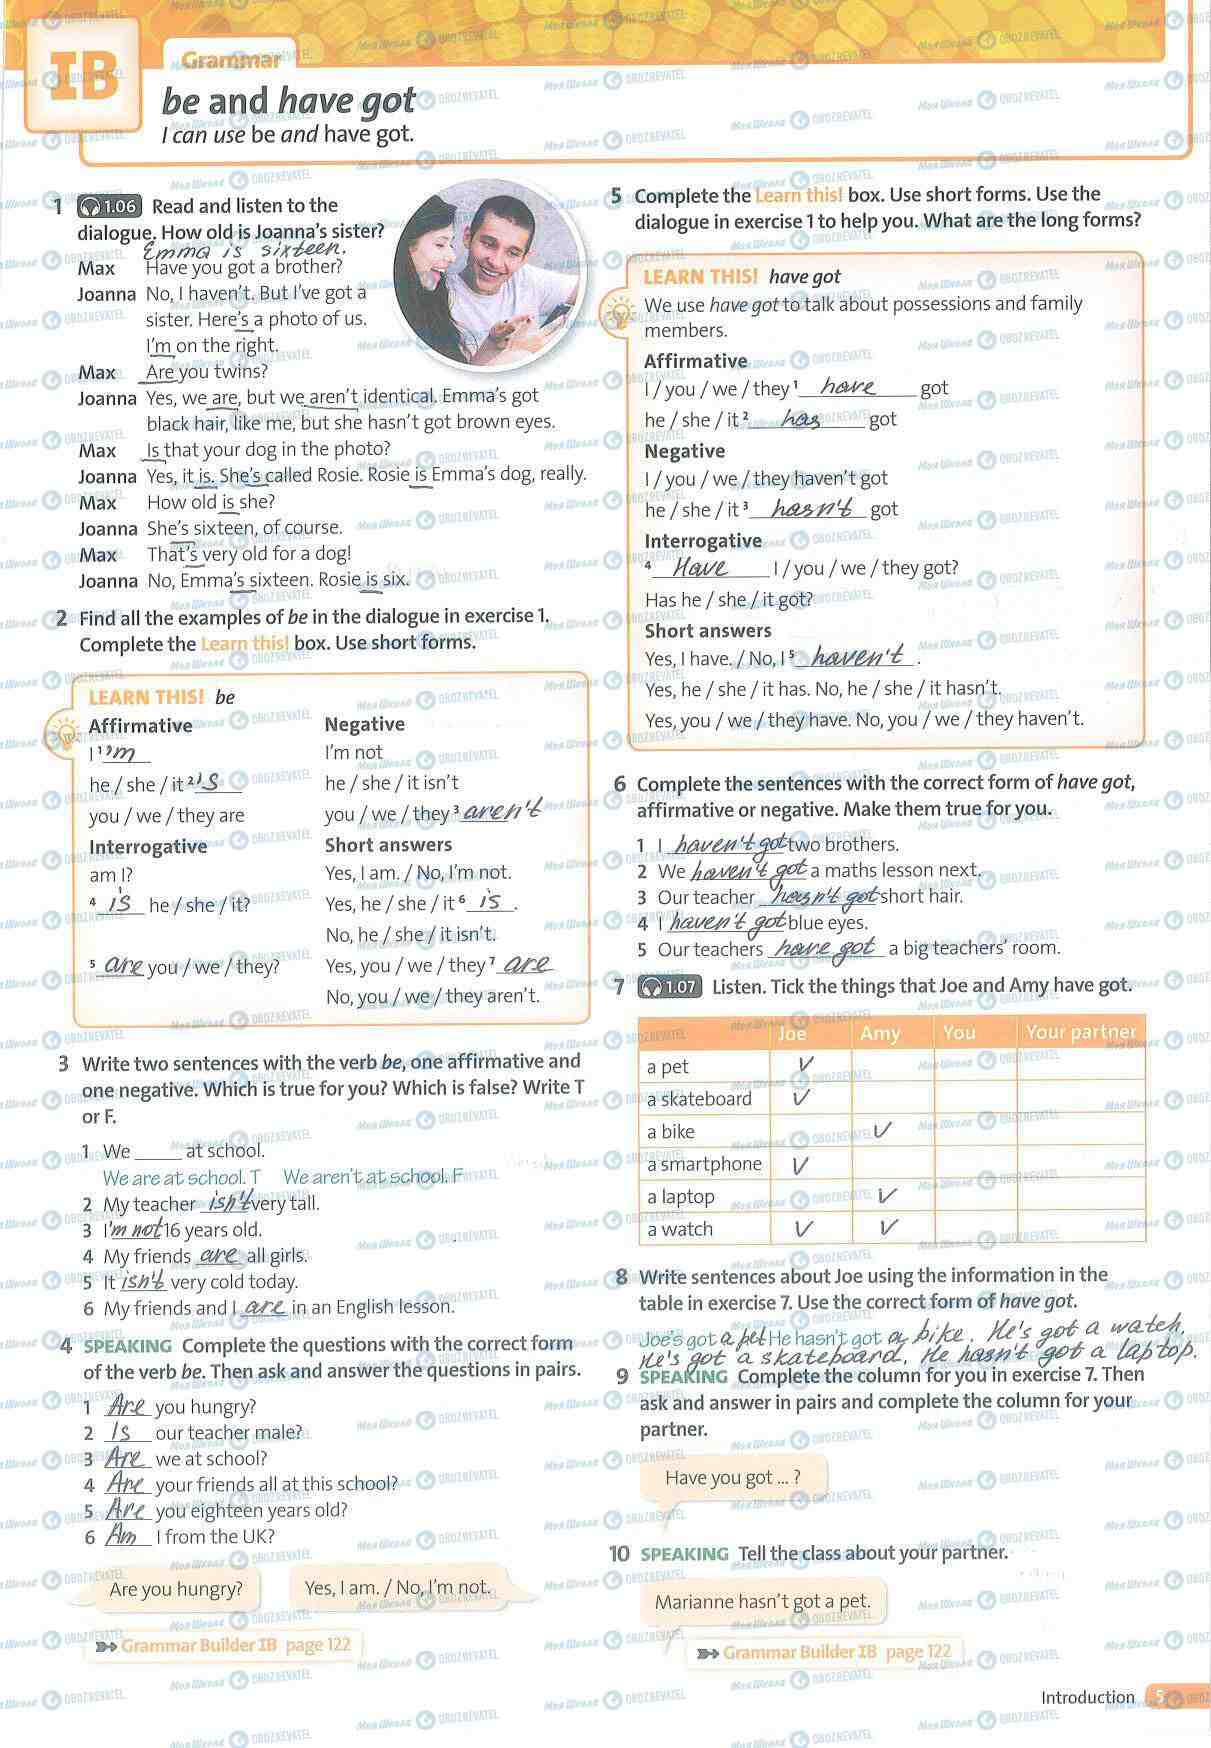 IB
Grammar
be and have got
I can use be and have got.
1 1.06 Read and listen to the
dialogue. How old is Joanna's sister?
Emma is sixteen.
Max Have you got a brother?
Joanna No, I haven't. But I've got a
sister. Here's a photo of us.
I'm on the right.
Max Are you twins?
Joanna Yes, we are, but we aren't identical. Emma's got
black hair, like me, but she hasn't got brown eyes.
Max Is that your dog in the photo?
Joanna Yes, it is. She's called Rosie. Rosie is Emma's dog, really.
Max How old is she?
Joanna She's sixteen, of course.
Max That's very old for a dog!
Joanna No, Emma's sixteen. Rosie is six.
2 Find all the examples of be in the dialogue in exercise 1.
Complete the Learn this! box. Use short forms.
LEARN THIS! be
Affirmative Negative
I 1 'm I'm not
he / she / it 2 's he / she / it isn't
you / we / they are you / we / they 3 aren't
Interrogative Short answers
am I? Yes, I am. / No, I'm not.
4 is he / she / it? Yes, he / she / it 6 is.
No, he / she / it isn't.
5 are you / we / they? Yes, you / we / they 7 are
No, you / we / they aren't.
3 Write two sentences with the verb be, one affirmative and
one negative. Which is true for you? Which is false? Write T
or F.
1 We _____ at school.
We are at school. T We aren't at school. F
2 My teacher isn't very tall.
3 I'm not 16 years old.
4 My friends are all girls.
5 It isn't very cold today.
6 My friends and I are in an English lesson.
4 SPEAKING Complete the questions with the correct form
of the verb be. Then ask and answer the questions in pairs.
1 Are you hungry?
2 Is our teacher male?
3 Are we at school?
4 Are your friends all at this school?
5 Are you eighteen years old?
6 Am I from the UK?
Are you hungry? Yes, I am. / No, I'm not.
Grammar Builder IB page 122
5 Complete the Learn this! box. Use short forms. Use the
dialogue in exercise 1 to help you. What are the long forms?
LEARN THIS! have got
We use have got to talk about possessions and family
members.
Affirmative
I / you / we / they 1 have got
he / she / it 2 has got
Negative
I / you / we / they haven't got
he / she / it 3 hasn't got
Interrogative
4 Have I / you / we / they got?
Has he / she / it got?
Short answers
Yes, I have. / No, I 5 haven't.
Yes, he / she / it has. No, he / she / it hasn't.
Yes, you / we / they have. No, you / we / they haven't.
6 Complete the sentences with the correct form of have got,
affirmative or negative. Make them true for you.
1 I haven't got two brothers.
2 We haven't got a maths lesson next.
3 Our teacher hasn't got short hair.
4 I haven't got blue eyes.
5 Our teachers have got a big teachers' room.
7 1.07 Listen. Tick the things that Joe and Amy have got.
Joe Amy You Your partner
a pet ✓
a skateboard ✓
a bike ✓
a smartphone ✓
a laptop ✓
a watch ✓ ✓
8 Write sentences about Joe using the information in the
table in exercise 7. Use the correct form of have got.
Joe's got a pet. He hasn't got a bike. He's got a watch.
He's got a skateboard. He hasn't got a laptop.
9 SPEAKING Complete the column for you in exercise 7. Then
ask and answer in pairs and complete the column for your
partner.
Have you got ... ?
10 SPEAKING Tell the class about your partner.
Marianne hasn't got a pet.
Grammar Builder IB page 122
Introduction 5